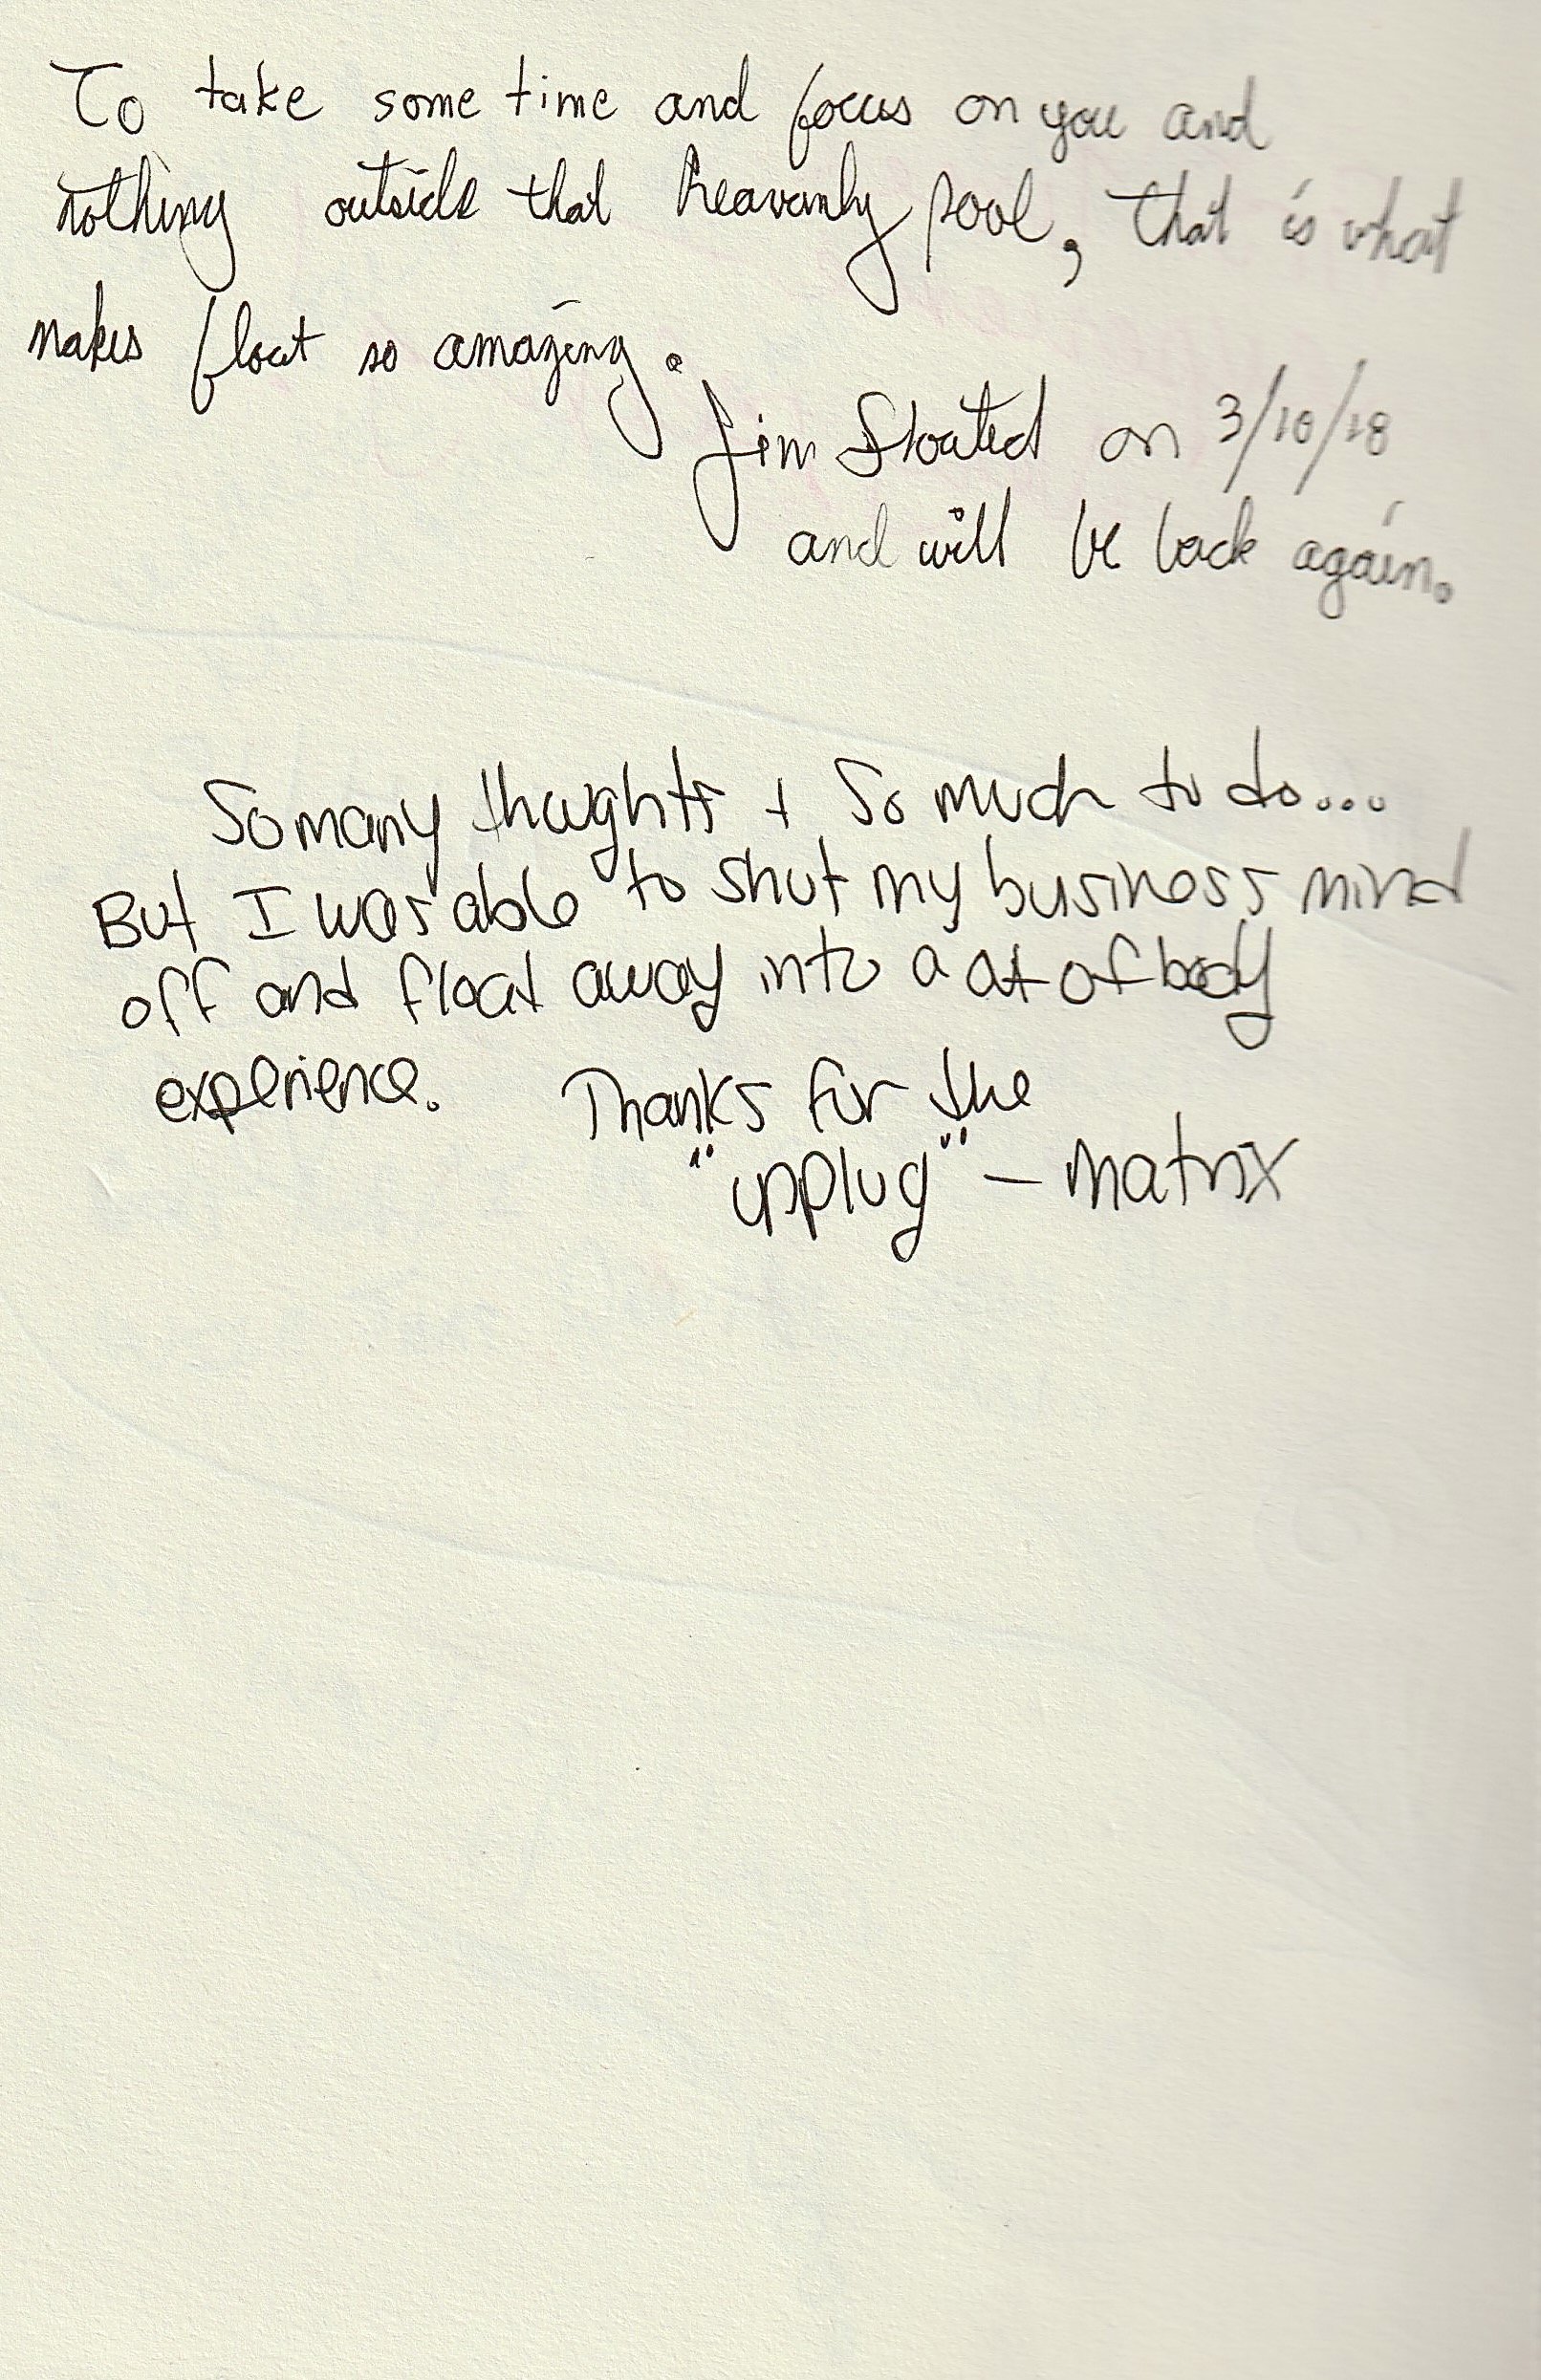 To take some time and focus on you and
nothing outside that heavanly pool, that is what
makes float so amazing.
Jim floated on 3/10/18
and will be back again.
So many thoughts + So much to do...
But I was able to shut my business mind
off and float away into a out of body
experience. Thanks for the
"unplug" – matrix